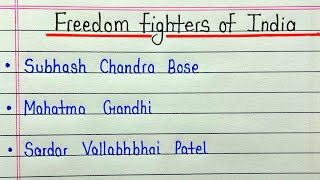 Freedom fighters of India
• Subhash Chandra Bose
• Mahatma Gandhi
• Sardar Vallabhbhai Patel